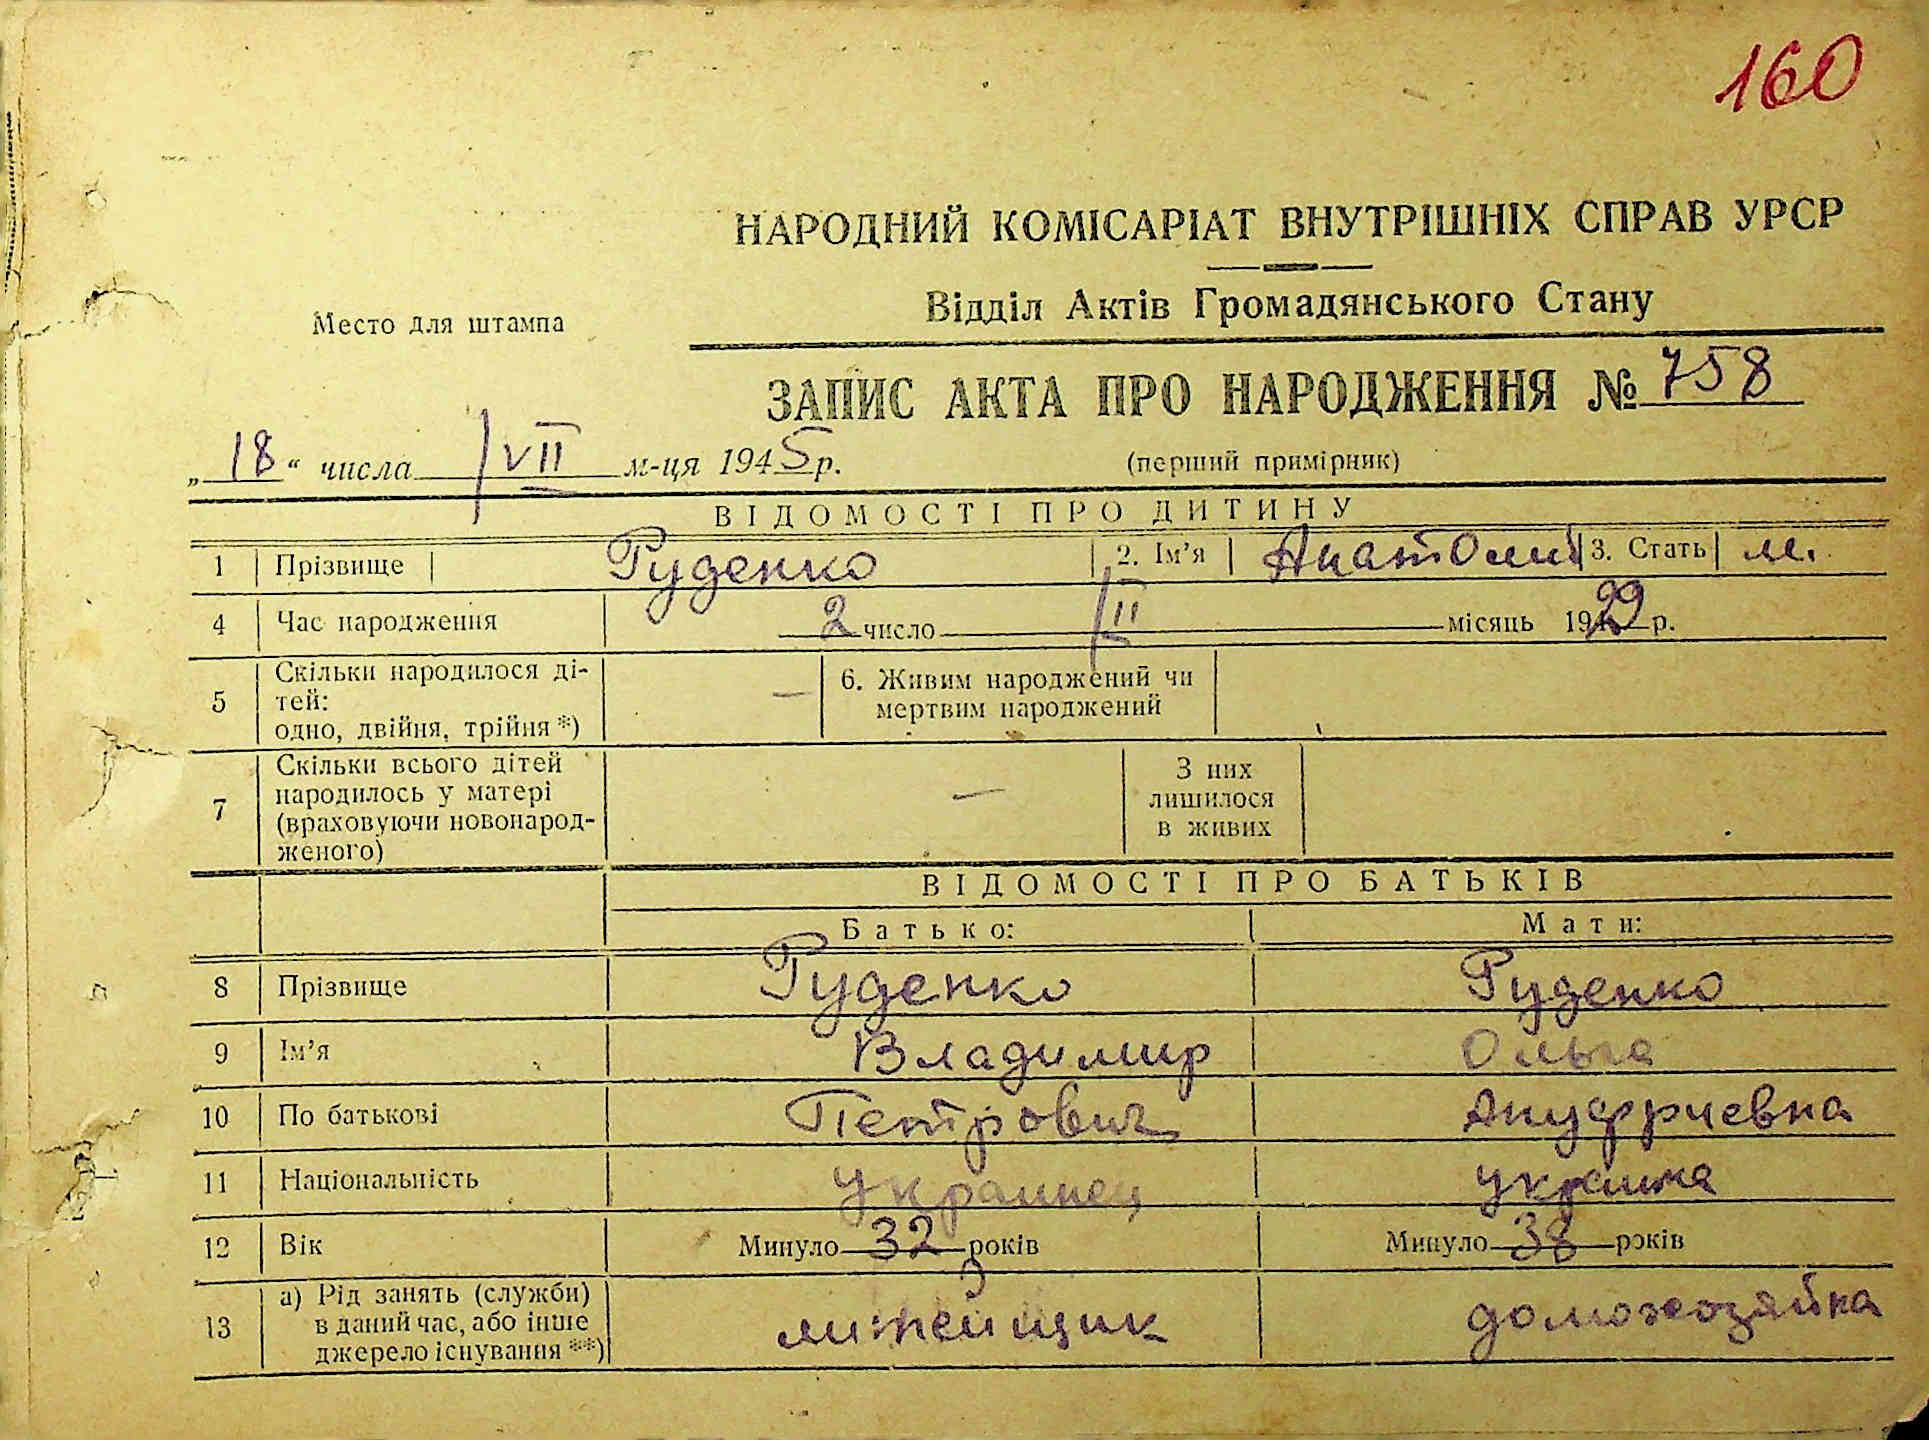 160
НАРОДНИЙ КОМІСАРІАТ ВНУТРІШНІХ СПРАВ УРСР
Відділ Актів Громадянського Стану
Место для штампа
ЗАПИС АКТА ПРО НАРОДЖЕННЯ № 758
„18“ числа VII м-ця 1945 р. (перший примірник)
ВІДОМОСТІ ПРО ДИТИНУ
1 Прізвище Руденко 2. Ім’я Анатолий 3. Стать м.
4 Час народження 2 число II місяць 1929 р.
5 Скільки народилося ді-
тей:
одно, двійня, трійня *) — 6. Живим народжений чи
мертвим народжений
7 Скільки всього дітей
народилось у матері
(враховуючи новонарод-
женого) — З них
лишилося
в живих
ВІДОМОСТІ ПРО БАТЬКІВ
Батько: Мати:
8 Прізвище Руденко Руденко
9 Ім’я Владимир Ольга
10 По батькові Петрович Ануфриевна
11 Національність украинец украинка
12 Вік Минуло 32 років Минуло 38 років
13 а) Рід занять (служби)
в даний час, або інше
джерело існування **) литейщик домохозяйка